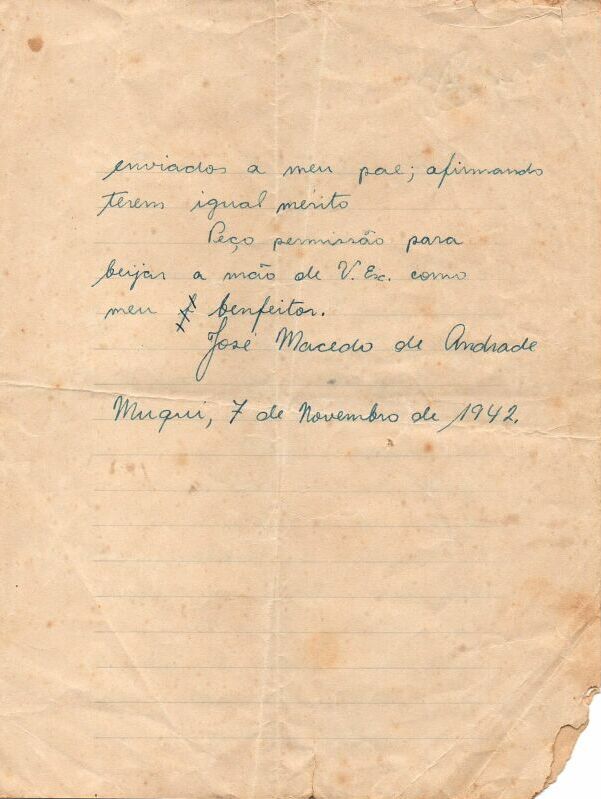 enviados a meu pae; afirmando
terem igual mérito
Peço permissão para
beijar a mão de V. Ex. como
meu benfeitor.
José Macedo de Andrade
Muqui, 7 de Novembro de 1942.